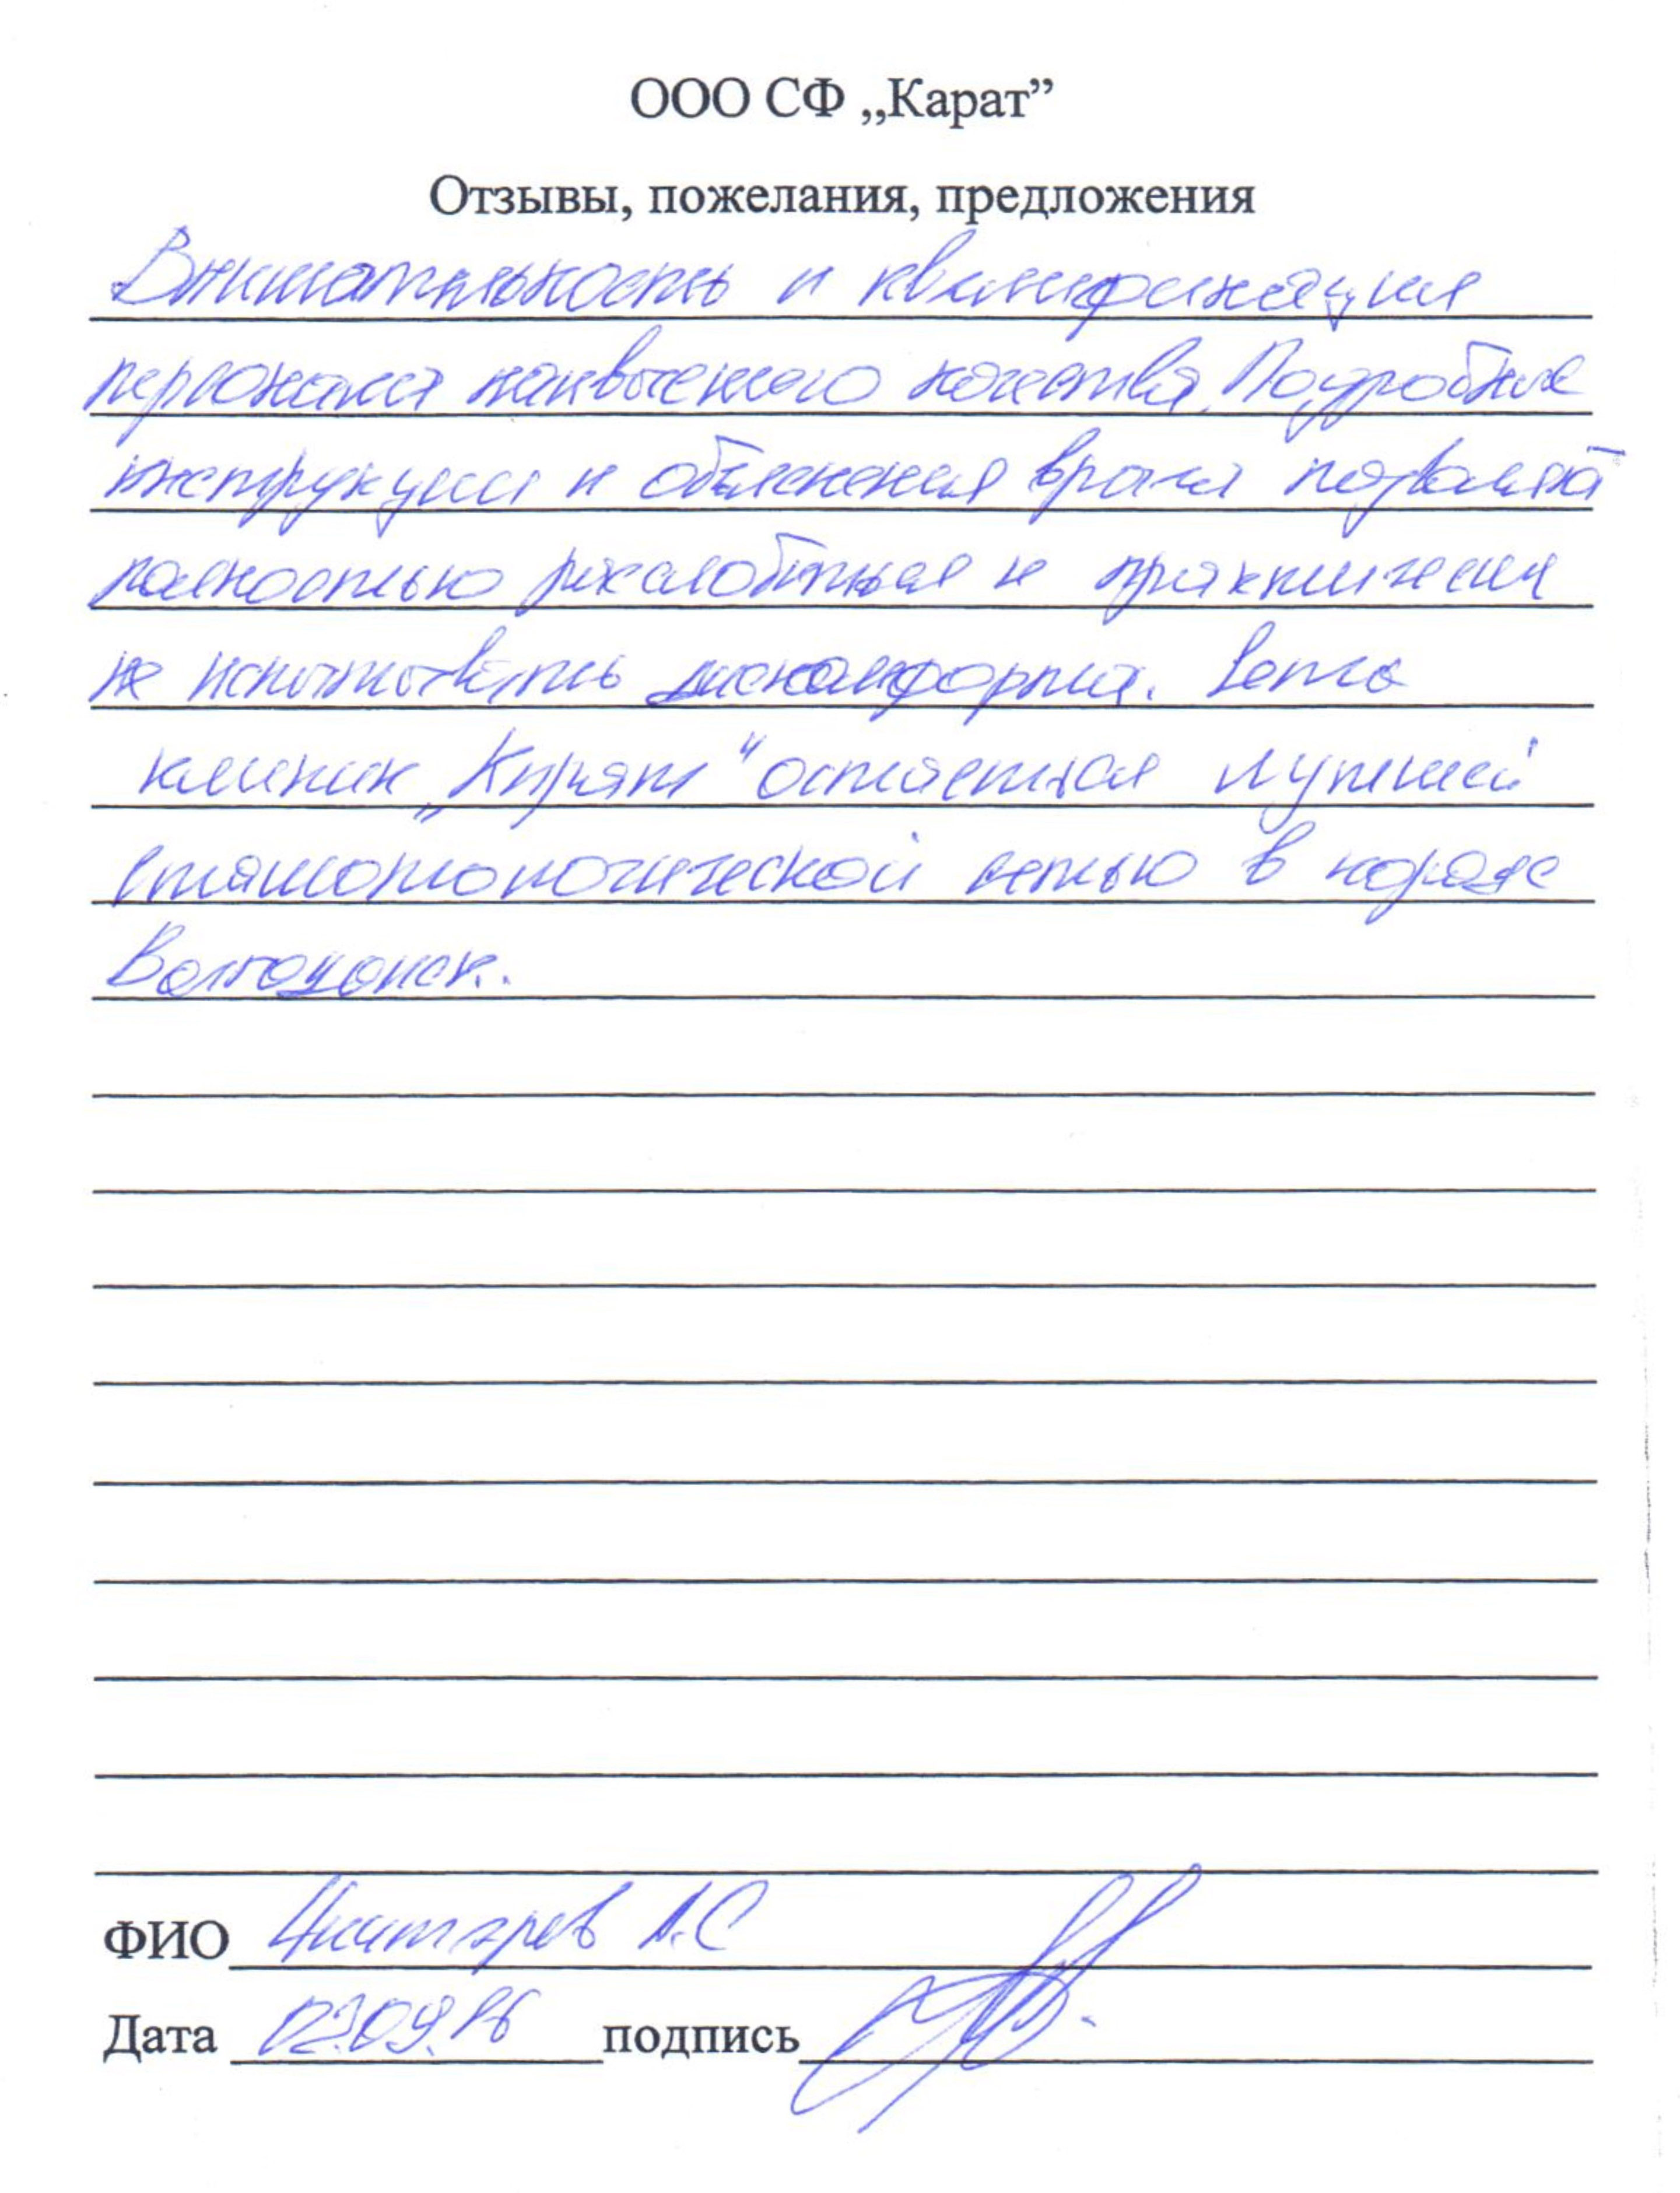 ООО СФ „Карат”
Отзывы, пожелания, предложения
Внимательность и квалификация
персонала наивысшего качества. Подробные
инструкции и объяснения врача позволяют
полностью расслабиться и практически
не испытывать дискомфорта. Сеть
клиник „Карат“ остается лучшей
стоматологической сетью в городе
Волгодонск.
ФИО А.С
Дата 02.09.16 подпись